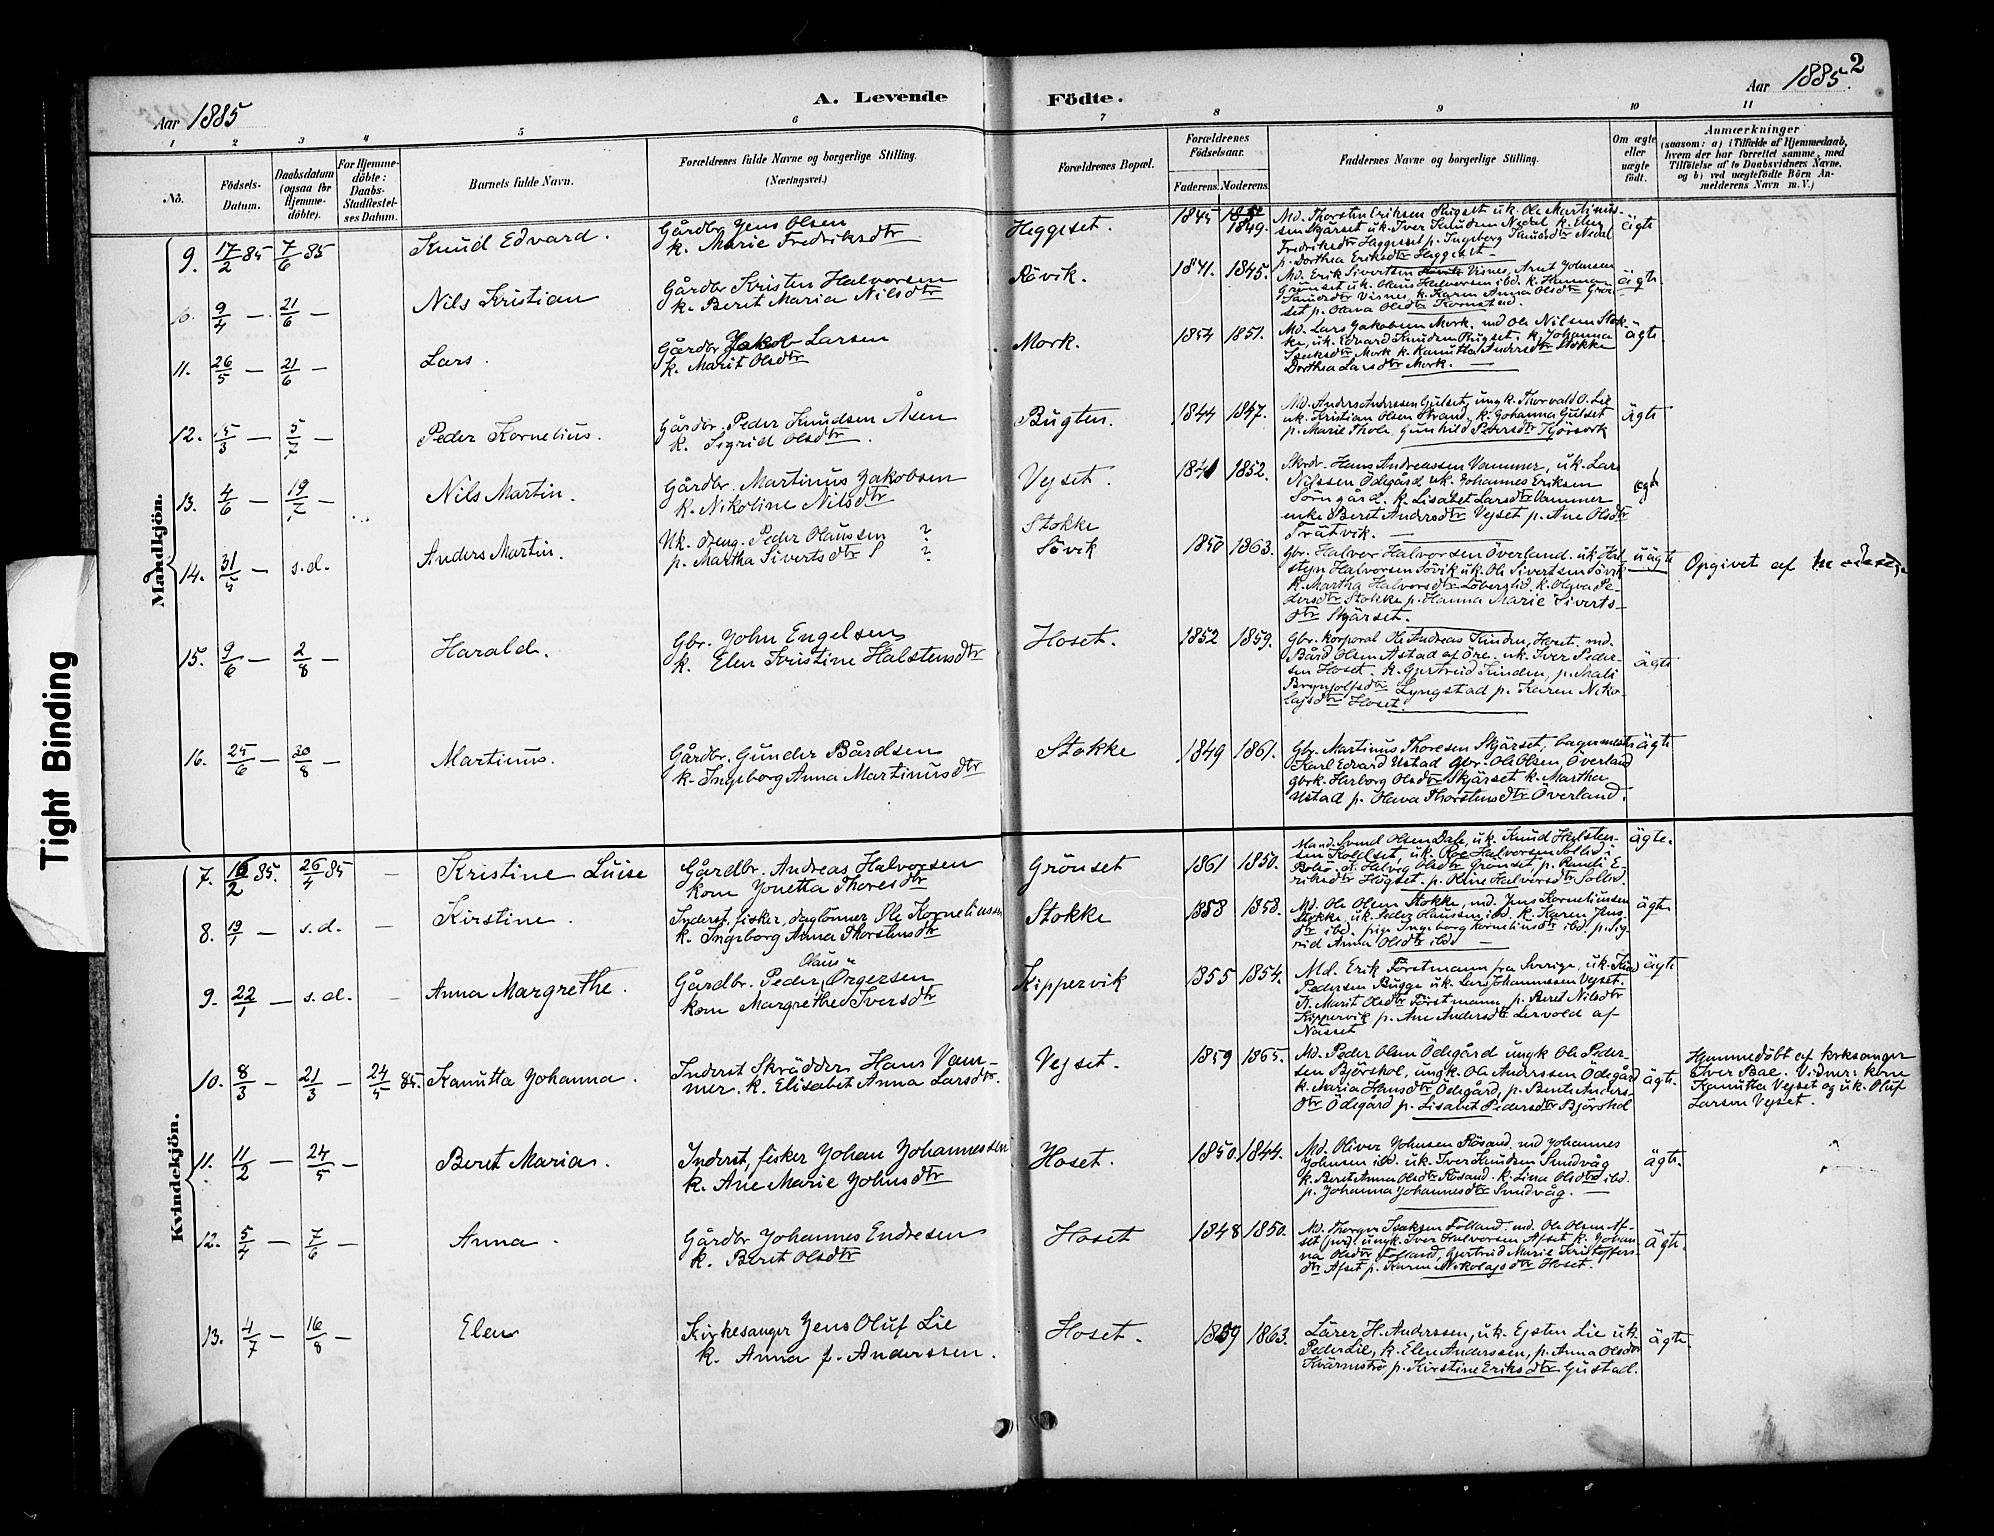 Aar 1885
A. Levende
Födte.
Aar 1885.
2
1 2 3 4 5 6 7 8 9 10 11
No.
Födsels-
Datum.
Daabsdatum
(ogsaa for
Hjemme-
döbte).
For Hjemme-
döbte:
Daabs-
Stadfæstel-
ses Datum.
Barnets fulde Navn.
Forældrenes fulde Navne og borgerlige Stilling.
(Næringsvei.)
Forældrenes Bopæl.
Forældrenes
Födselsaar.
Faderens. Moderens.
Faddernes Navne og borgerlige Stilling.
Om ægte
eller
uægte
födt.
Anmærkninger
(saasom: a) i Tilfælde af Hjemmedaab,
hvem der har forrettet samme, med
Tilföielse af to Daabsvidners Navne,
og b) ved uægtefödte Börn An-
melderens Navn m. V.)
Mandkjön.
9. 17/2 85 7/6 85 Knud Edvard.
Gårdbr Jens Olsen
k. Marie Fredriksdtr
Heggeset. 1845 1849.
Md. Thorsten Eriksen Rugset u.k. Ole Martinus-
sen Skjärset u.k. Iver Knudsen Nedal k. Elen
Fredriksdtr Heggeset p. Ingeborg Knudsdtr Nedal
p. Dorthea Eriksdtr Heggeset
ägte
10. 9/4 — 21/6 — Nils Kristian
Gårdbr Kristen Halvorsen
k. Beret Maria Nilsdtr
Rävik. 1841. 1845.
Md. Erik Sivertsen Visnes, Arnt Johnsen
Grönset u.k. Olaus Halvorsen ibd. k. Hanna
Visnes, k. Karen Anna Olsdtr Grön-
set p. Olava Olsdtr Kornstad.
ägte
11. 26/5 — 21/6 — Lars.
Gårdbr Jakob Larsen
k. Marit Olsdtr
Mork. 1854 1851.
Md. Lars Jakobsen Mork, md Ole Nilsen Stok-
ke, u.k. Edvard Knudsen Rugset. k. Johanna
Isaksdtr Mork k. Kanutta Andersdtr Stokke
Dorthea Larsdtr Mork. —
ägte
12. 15/3 — 5/7 — Peder Kornelius.
Gårdbr. Peder Knudsen Åsen
k. Sigrid Olsdtr.
Bugten. 1844 1847.
Md. Anders Anderssen Gulset, ungk. Thorvald O. Lie
u.k. Kristian Olsen Strand, k. Johanna Gulset
p. Marie Thole Gunhild Pedersdtr
ägte
13. 4/6 — 19/7 — Nils Martin.
Gårdbr. Martinus Jakobsen
k. Nikoline Nilsdtr
Vejset. 1841 1852.
Skrdr. Hans Andreassen Vammer, u.k. Lars
Nilssen Ödegård u.k. Johannes Eriksen
Sörngård. k. Lisabet Larsdtr Vammer
enke Beret Andersdtr Vejset p. Ane Olsdtr
Trätvik. —
ägte
14. 31/5 — s.d. Anders Martin.
Uk. dreng. Peder Olaussen ?
p. Martha Sivertsdtr S ?
Stokke
Sövik 1850 1863.
Gbr. Halvor Halvorsen Överland. u.k. Hal-
steyn Halvorsen Sövik u.k. Ole Sivertsen Sövik
k. Martha Halvorsdtr Löbergslid. k. Olava Pe-
dersdtr Stokke p. Hanna Marie Siverts-
dtr Skjärset.
uägte Opgivet af
15. 9/6 — 2/8 — Harald.
Gbr. John Engelsen
k. Elen Kristine Halstensdtr
Hoset. 1852 1859.
Gbr. korporal Ole Andreas Kinden, Harst. md.
Bård Olsen Astad af Öre. u.k. Iver Peder-
sen Hoset. k. Gjertruid Kinden, p. Mali
Brynjolfsdtr Lyngstad p. Karen Niko-
lajsdtr Hoset.
ägte
16. 25/6 — 30/8 — Martinus.
Gårdbr. Gunder Bårdsen
k. Ingeborg Anna Martinusdtr
Stokke 1849 1861.
Gbr. Martinus Thoresen Skjärset, bagermestr
Karl Edvard Ustad Gbr. Ole Olsen, Överland
Gbrk. Herborg Olsdtr Skjärset k. Martha
Ustad p. Olava Thorstensdtr Överland.
ägte
Kvindekjön.
7. 16/2 85. 26/4 85 — Kristine Luise
Gårdbr. Andreas Halvorsen
kom Jonetta Thoresdtr
Grönset 1861 1850.
Mand Svend Olsen Dale, u.k. Knud Halsten-
sen Koldset, u.k. Roe Halvorsen Sollid.
Olsdtr Grönset, p. Randi E-
riksdtr Högset. p. Oline Halvorsdtr Sollid.
ägte.
8. 19/1 — s.d. — Kirstine.
Inderst, fisker, daglönner Ole Korneliussen
k. Ingeborg Anna Thorstensdtr
Stokke 1858 1858.
Md. Ole Olsen Stokke, md. Jens Korneliussen
Stokke, u.k. Peder Olaussen ibd. k. Karen Jens-
dtr ibd. pige Ingeborg Korneliusdtr ibd. p. Sig-
rid Anna Olsdtr ibd. —
ägte
9. 22/1 — s.d. — Anna Margrethe.
Gårdbr. Peder Olaus Örgersen
kom Margrethe Iversdtr
Kippervik 1855 1854.
Md. Erik Förstmann fra Sverige, u.k. Knud
Pedersen Bugge u.k. Lars Johannessen Vejset.
k. Marit Olsdtr Förstmann, p. Beret Nilsdtr
Kippervik p. Ane Andersdtr Lervold af
Nässet
ägte
10. 8/3 — 21/3 — 24/5 85. Kanutta Johanna.
Inderst Skrädder Hans Vam-
mer. k. Elisabet Anna Larsdtr.
Vejset. 1859 1865.
Md. Peder Olsen Ödegård ungk Ole Peder-
sen Björskol, ungk. Ole Anderssen Ödegård
k. Maria Hansdtr Ödegård, p. Bente Anders-
dtr Ödegård p. Lisabet Pedersdtr Björskol
ägte.
Hjemmedöbt af kirksanger
Elver Bae. Vidner: kone
Kanutta Vejset og u.k. Oluf
Larsen Vejset.
11. 11/2 — 24/5 — Beret Maria.
Inderst, fisker Johan Johannessen
k. Ane Marie Johnsdtr
Hoset. 1850 1844.
Md. Oliver Johnsen Rösand, md Johannes
Johnsen ibd. u.k. Iver Knudsen Sundvåg
k. Beret Anna Olsdtr Rösand. k. Lina Olsdtr ibd.
p. Johanna Johannesdtr Sundvåg. —
ägte.
12. 5/4 — 7/6 — Anna.
Gårdbr Johannes Endresen
k. Beret Olsdtr
Hoset 1848 1850.
Md. Thorger Isaksen Folland. md. Ole Olsen Af-
set jun. ungk. Iver Halvorsen Afset k. Johan-
na Olsdtr Folland, Gjertrud Marie Kristoffers-
dtr Afset p. Karen Nikolajsdtr Hoset.
ägte.
13. 4/7 — 16/8 — Elen
Kirkesanger Jens Oluf Lie
k. Anna f. Anderssen.
Hoset. 1859 1863.
Lärer H. Anderssen, u.k. Ejsten Lie u.k.
Peder Lie, k. Elen Anderssen, p. Anna Olsdtr
Kvärnströ, p. Kirstine Eriksdtr Gustad.
ägte.
Tight Binding